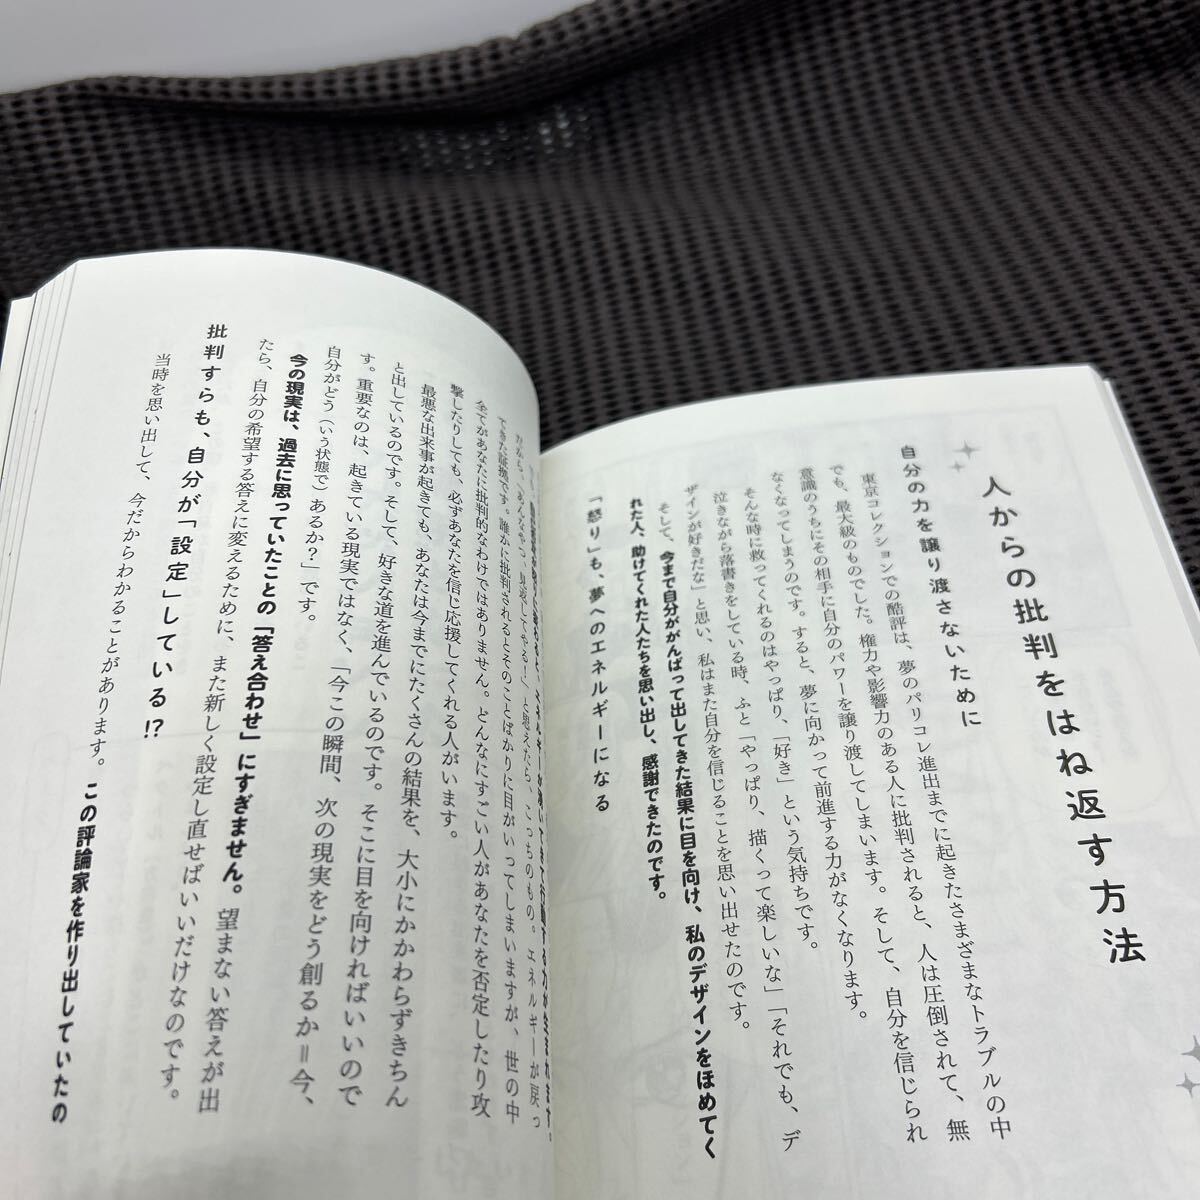 人からの批判をはね返す方法
自分の力を譲り渡さないために
東京コレクションでの酷評は、夢のパリコレ進出までに起きたさまざまなトラブルの中
でも、最大級のものでした。権力や影響力のある人に批判されると、人は圧倒されて、無
意識のうちにその相手に自分のパワーを譲り渡してしまいます。そして、自分を信じられ
なくなってしまうのです。すると、夢に向かって前進する力がなくなります。
そんな時に救ってくれるのはやっぱり、「好き」という気持ちです。
泣きながら落書きをしている時、ふと「やっぱり、描くって楽しいな」「それでも、デ
ザインが好きだな」と思い、私はまた自分を信じることを思い出せたのです。
そして、今まで自分ががんばって出してきた結果に目を向け、私のデザインをほめてく
れた人、助けてくれた人たちを思い出し、感謝できたのです。
「怒り」も、夢へのエネルギーになる
だから、あんなやつ、見返してやる！」と思えたら、こっちのもの。エネルギーが戻っ
てきた証拠です。誰かに批判されるとそのことばかりに目がいってしまいますが、世の中
全てがあなたに批判的なわけではありません。どんなにすごい人があなたを否定したり攻
撃したりしても、必ずあなたを信じ応援してくれる人がいます。
最悪な出来事が起きても、あなたは今までにたくさんの結果を、大小にかかわらずきちん
と出しているのです。そして、好きな道を進んでいるのです。そこに目を向ければいいので
す。重要なのは、起きている現実ではなく、「今この瞬間、次の現実をどう創るか＝今、
自分がどう（いう状態で）あるか？」です。
今の現実は、過去に思っていたことの「答え合わせ」にすぎません。望まない答えが出
たら、自分の希望する答えに変えるために、また新しく設定し直せばいいだけなのです。
批判すらも、自分が「設定」している!?
当時を思い出して、今だからわかることがあります。この評論家を作り出していたの